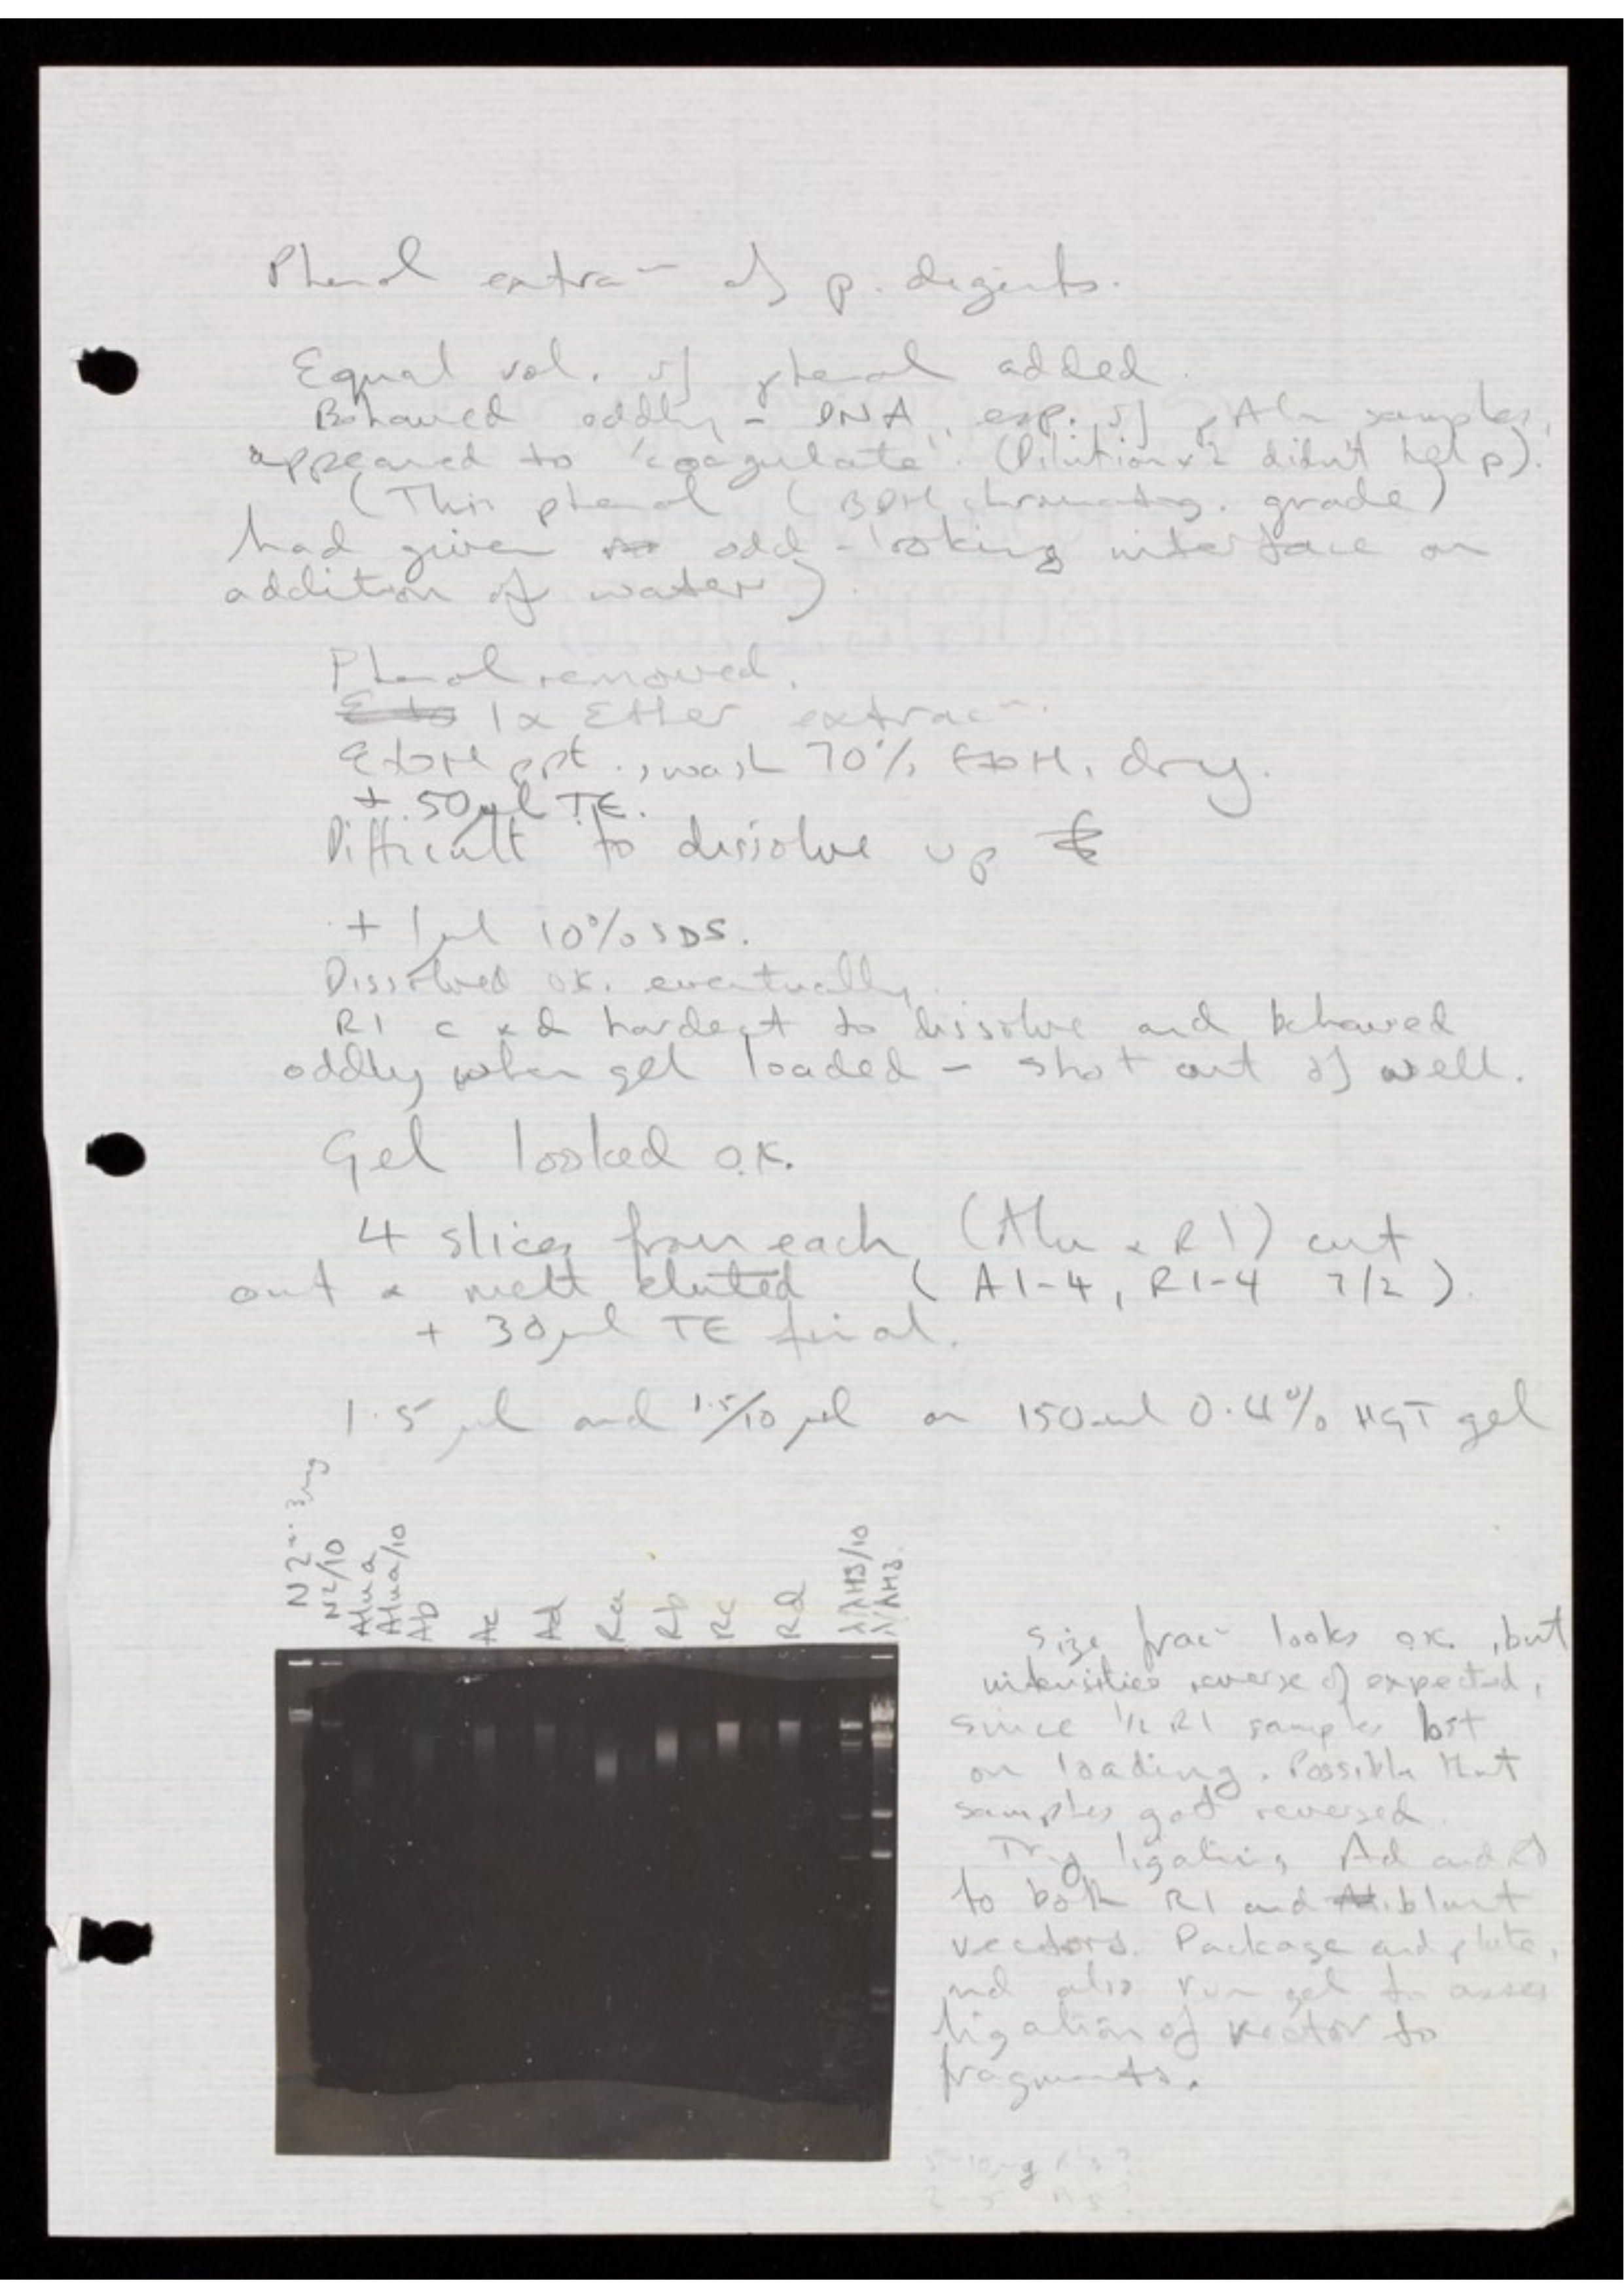 Phenol extra~ of p. digests.
Equal vol. of phenol added.
Behaved oddly - DNA, esp. of Alu samples,
appeared to 'coagulate'. (Dilution x2 didn't help).
(This phenol (BDH chromatog. grade)
had given odd-looking interface on
addition of water).
Phenol removed.
1x Ether extrac~.
EtOH ppt., wash 70% EtOH, dry.
+ 50µl TE.
Difficult to dissolve up
+ 1µl 10% SDS.
Dissolved OK. eventually.
R1 c & d hardest to dissolve and behaved
oddly when gel loaded - shot out of well.
Gel looked O.K.
4 slices from each (Alu & R1) cut
out & melt eluted (A1-4, R1-4 7/2).
+ 30µl TE final.
1.5 µl and 1.5/10 µl on 150ml 0.4% HGT gel
N2 ~ 3µg
N2/10
Alu a
Alu a/10
Ab
Ac
Ad
Ra
Rb
Rc
Rd
λ/λH3/10
λ/λH3.
Size frac~ looks OK., but
intensities reverse of expected,
since 1/2 R1 samples lost
on loading. Possible that
samples got reversed.
Try ligating Ad and Rd
to both R1 and blunt
vectors. Package and plate,
and also run gel to assess
ligation of vector to
fragments.
5-10µg R's?
2-5 A's?